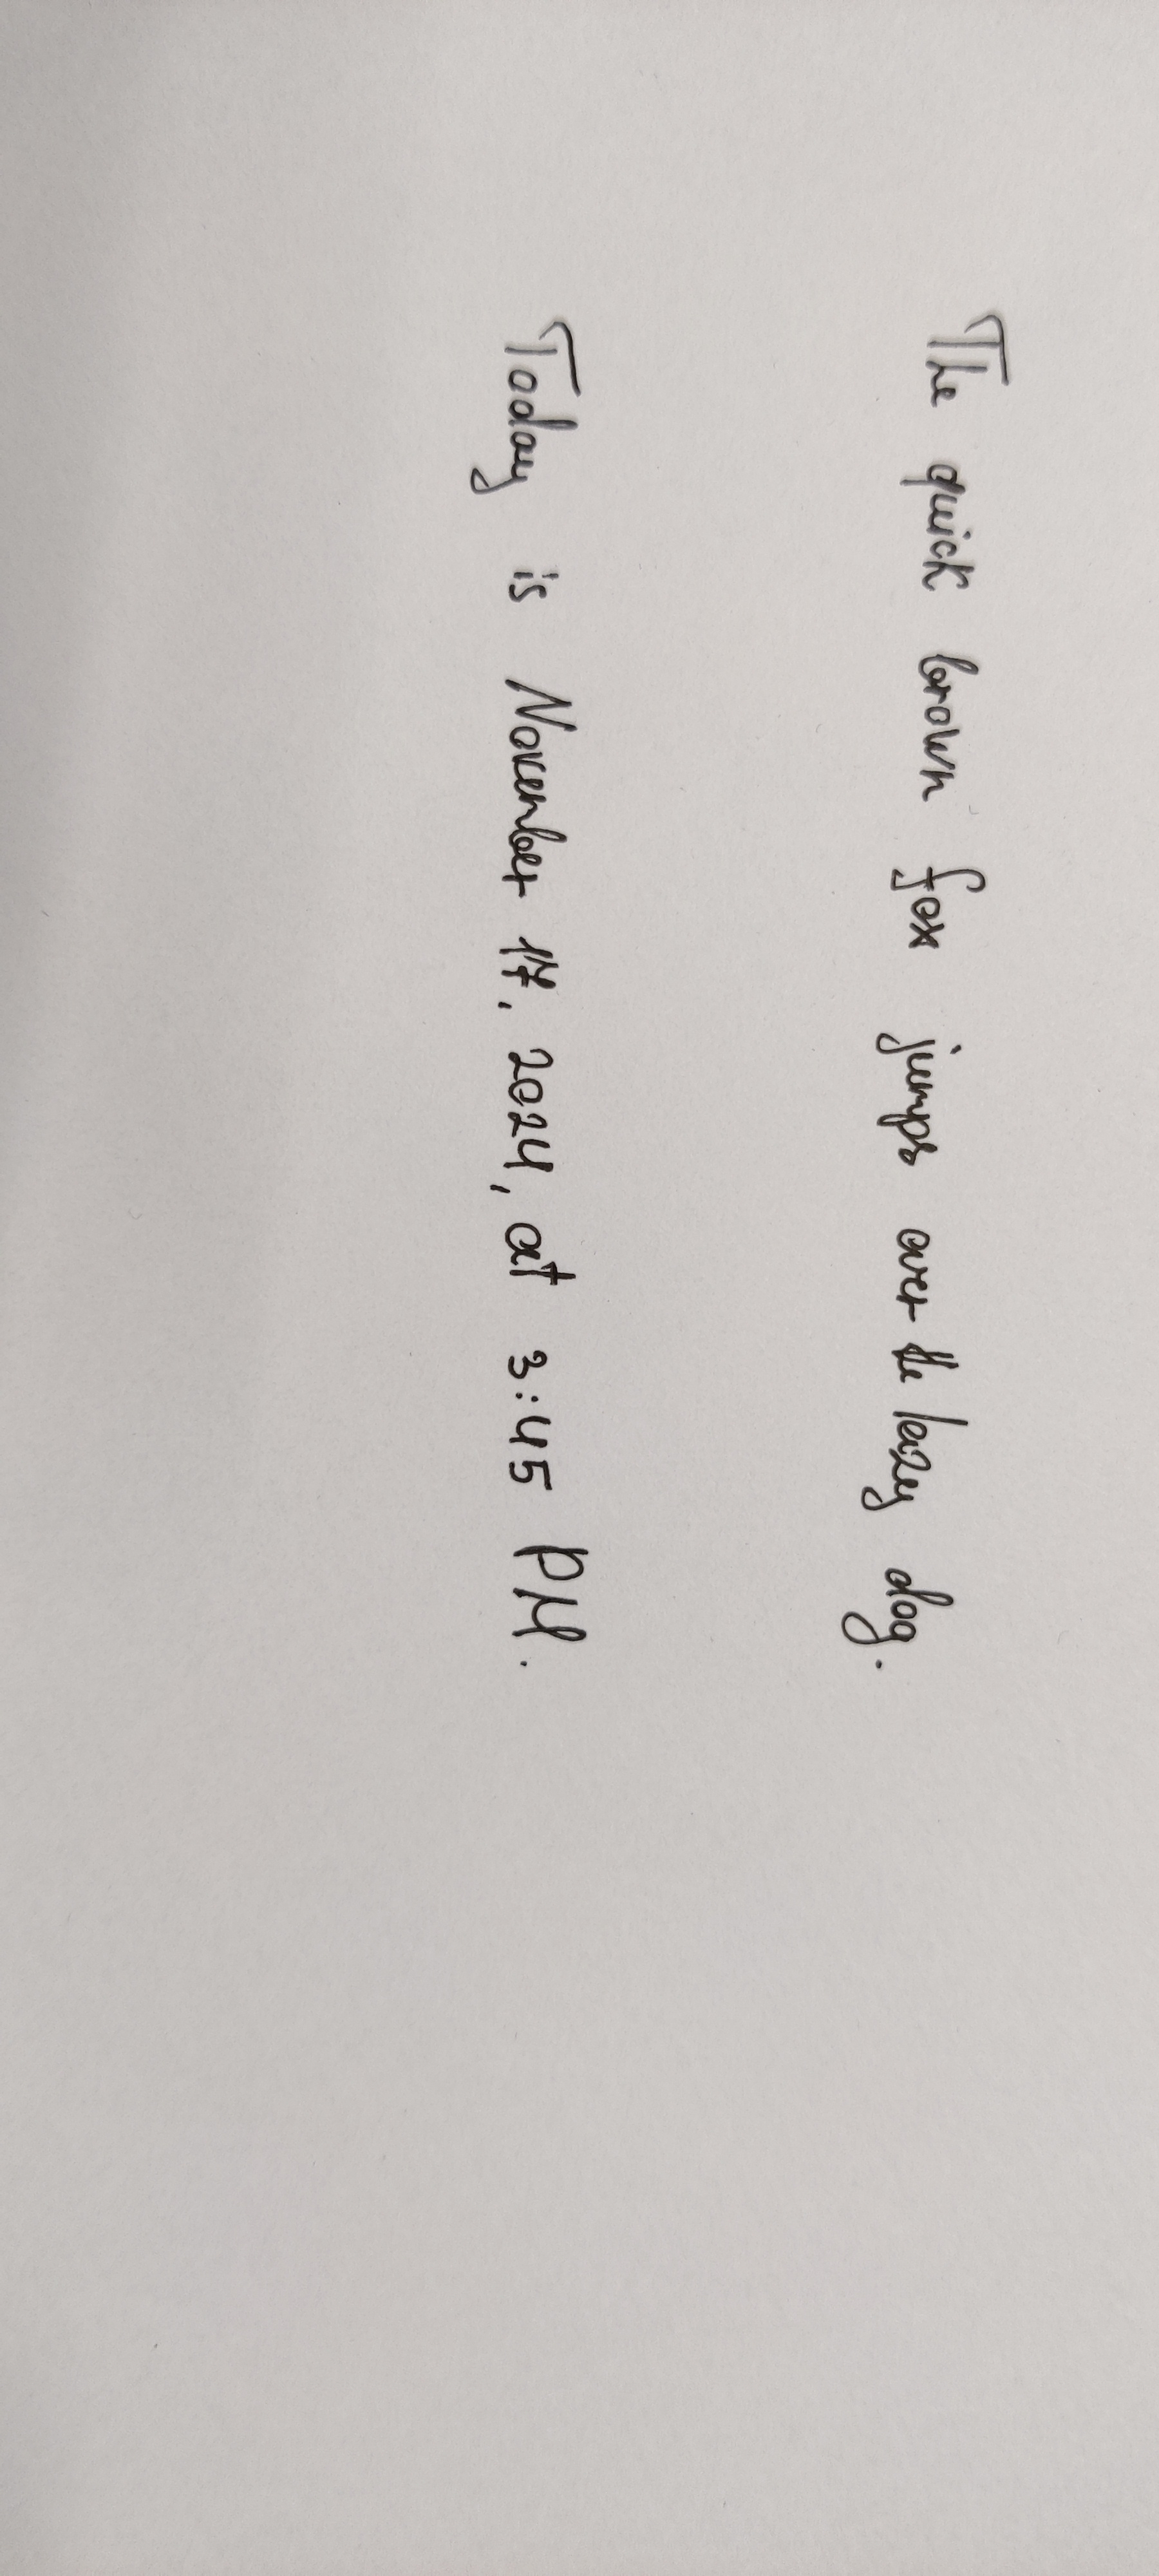 The quick brown fox jumps over the lazy dog.
Today is November 17, 2024, at 3:45 PM.